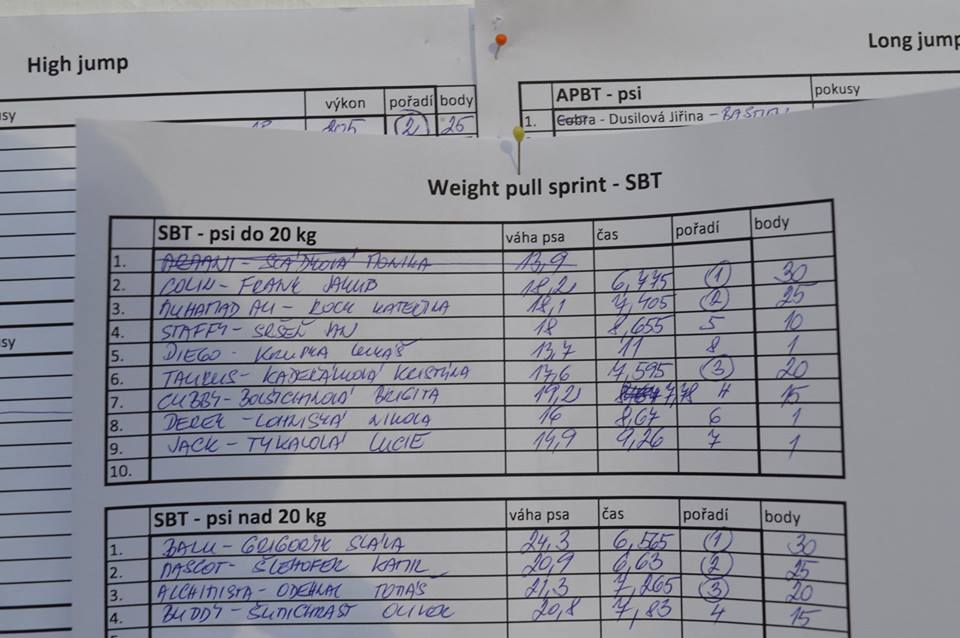 High jump
Long jump
výkon pořadí body
205 2 25
APBT - psi pokusy
1. Cobra - Dusilová Jiřina -
Weight pull sprint - SBT
SBT - psi do 20 kg váha psa čas pořadí body
1. Monika 13,9
2. COLIN - FRANK JAKUB 18,2 6,475 1 30
3. MUHAMAD ALI - KOCH KATEŘINA 18,1 7,405 2 25
4. STAFFY - SRŠEŇ AN 18 8,655 5 10
5. DIEGO - KRUPKA LUKÁŠ 13,7 11 8 1
6. TAURUS - KADEŘÁVKOVÁ KRISTÝNA 17,6 7,595 3 20
7. CUBBY - BRIGITA 19,2 7,78 4 15
8. DEREK - NIKOLA 16 8,67 6 1
9. JACK - TYKALOVÁ LUCIE 14,9 9,26 7 1
10.
SBT - psi nad 20 kg váha psa čas pořadí body
1. BALU - GRIGORYK SLÁVA 24,3 6,565 1 30
2. MASCOT - ŠLEHOFER KAMIL 20,9 6,63 2 25
3. ALCHIMISTA - ODEHNAL TOMÁŠ 21,3 7,265 3 20
4. BUDDY - ŠUNICHRAST 20,8 7,83 4 15